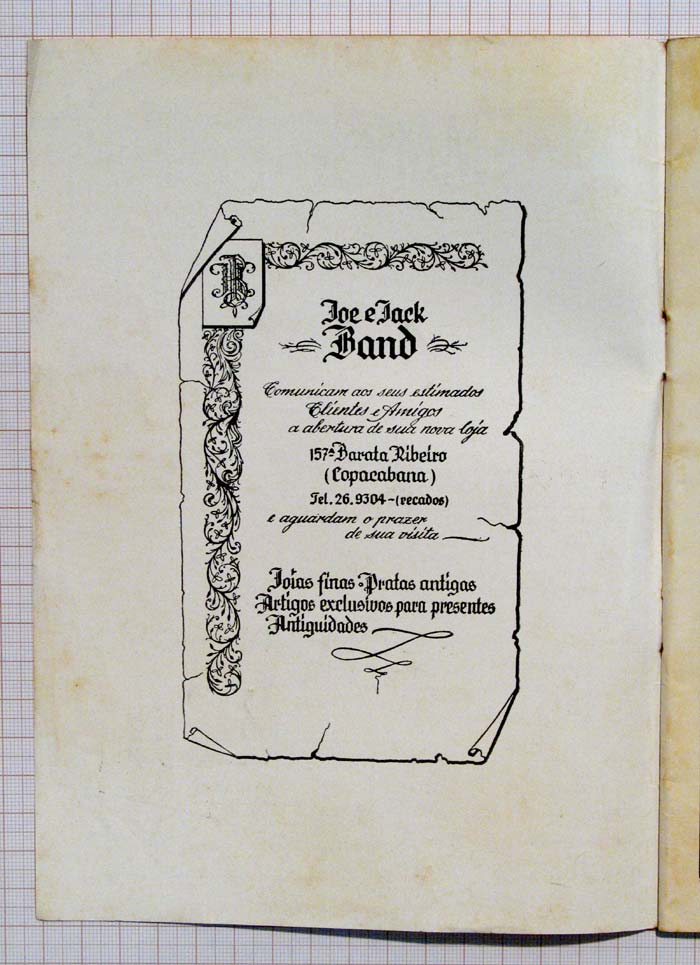 B
Joe e Jack
Band
Comunicam aos seus estimados
Clientes e Amigos
a abertura de sua nova loja
157ª Barata Ribeiro
(Copacabana)
Tel. 26.9304-(recados)
e aguardam o prazer
de sua visita
Joias finas - Pratas antigas
Artigos exclusivos para presentes
Antiguidades